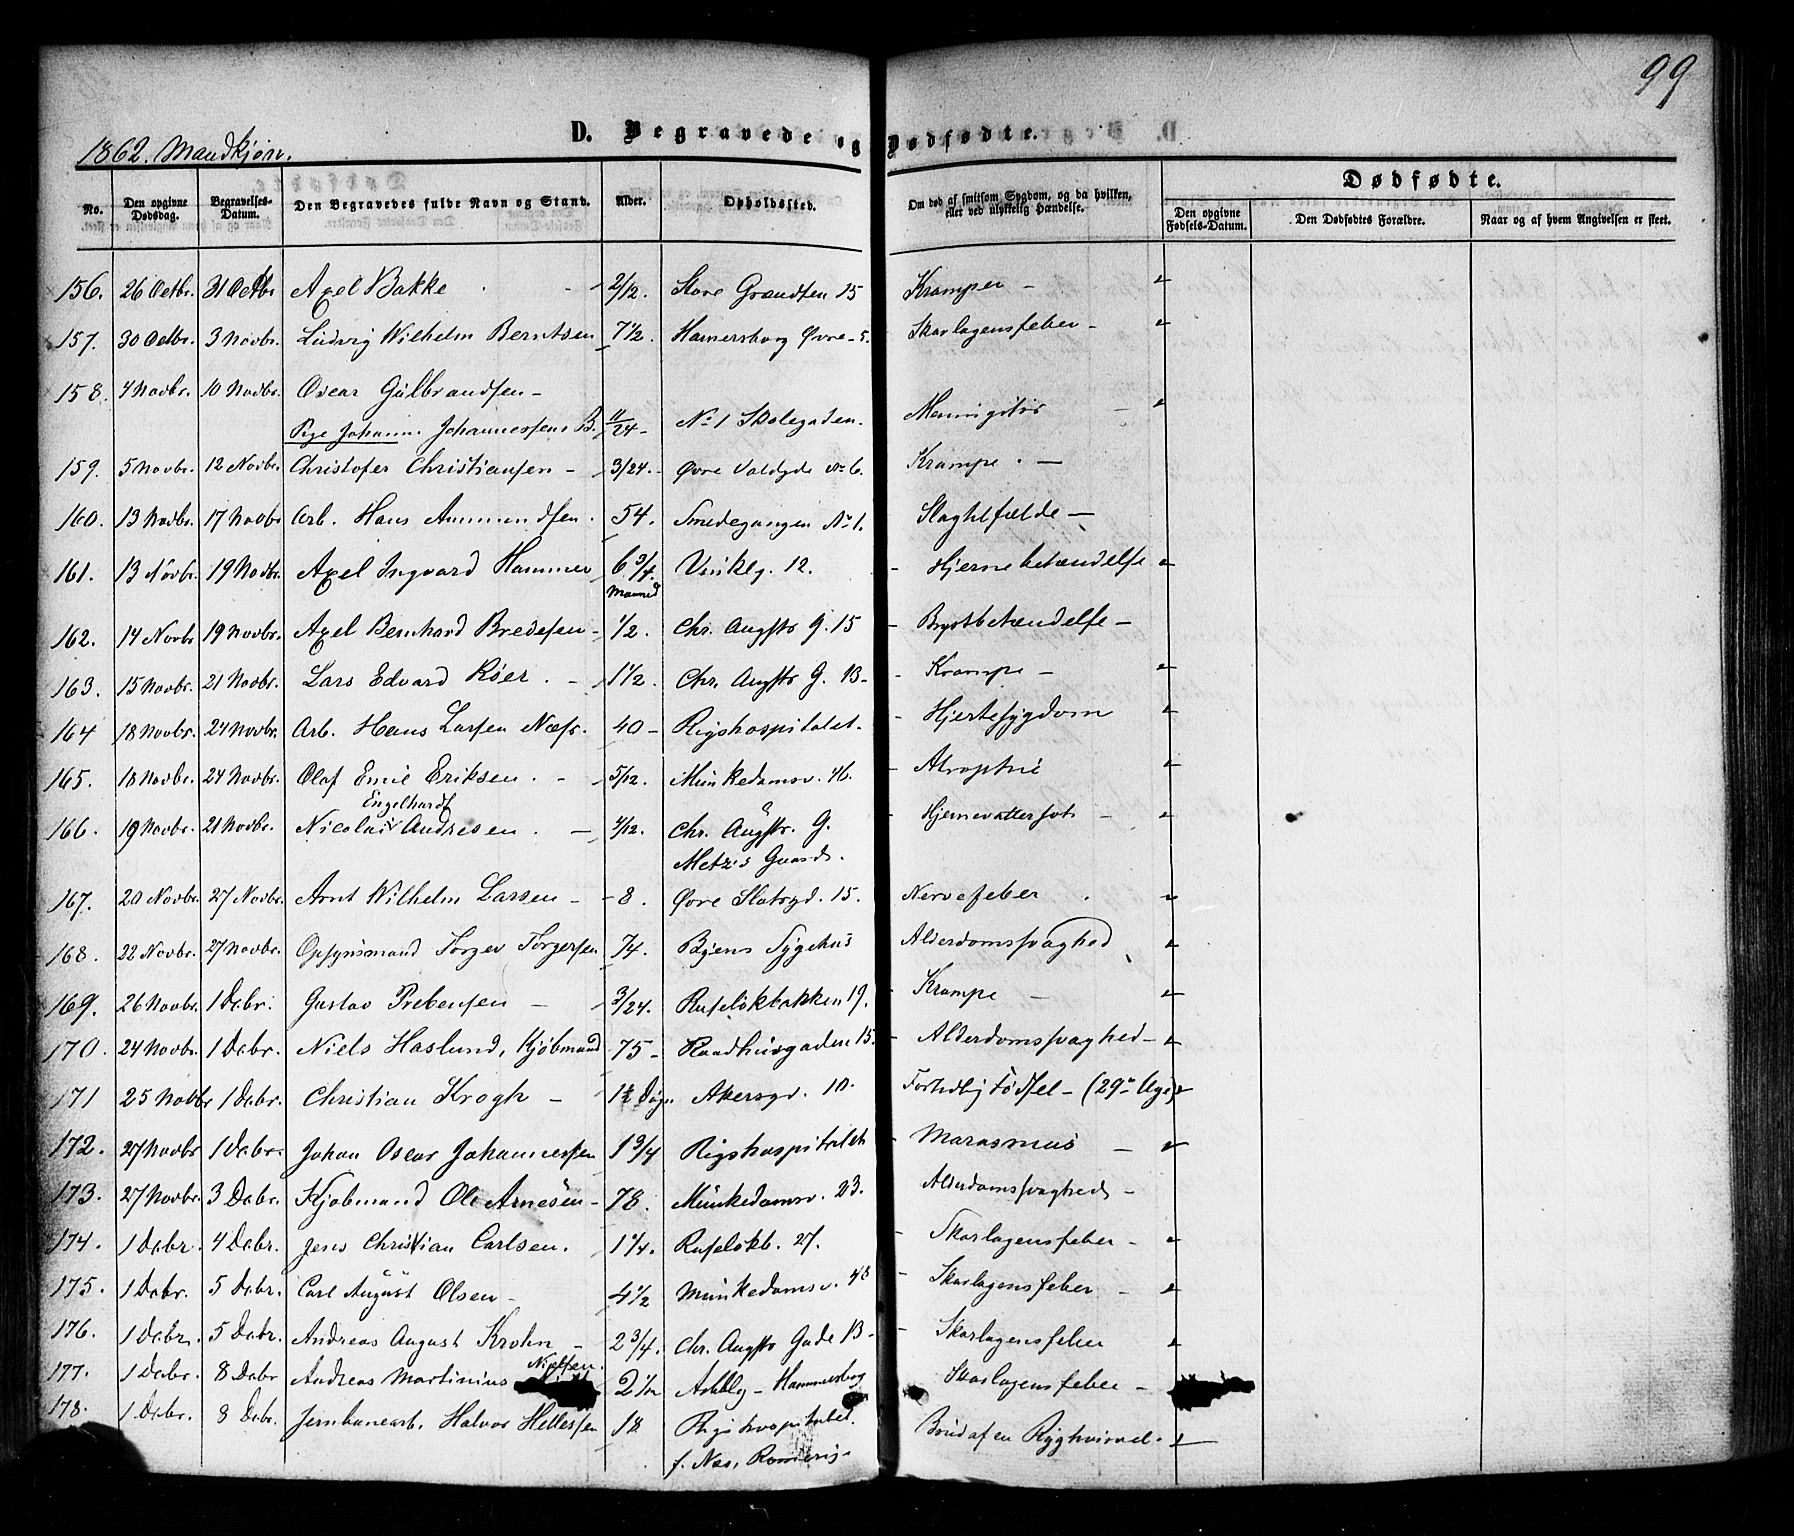 99
1862. Mandkjøn.
D. Begravede og Dødfødte.
No. Den opgivne Dødsdag. Begravelses-Datum. Den Begravedes fulde Navn og Stand. Alder. Opholdssted. Om død af smitsom Sygdom, og da hvilken, eller ved ulykkelig Hændelse. Dødfødte.
Den opgivne Fødsels-Datum. Den Dødfødtes Forældre. Naar og af hvem Angivelsen er skeet.
156. 26 Octbr. 31 Octbr Axel Bakke - 2/12. Store Grændsen 15 Kramper -
157. 30 Octbr. 3 Novbr. Ludvig Wilhelm Berntsen 7 1/2. Hamersborg Øvre - 5. Skarlagensfeber -
158. 4 Novbr. 10 Novbr. Oscar Gulbrandsen -
Pige Johanne Johannessens B. 11/24 - No 1 Skolegaden. Meningitis -
159. 5 Novbr. 12 Novbr. Christofer Christiansen - 3/24. Øvre Voldgde No 6. Krampe. -
160. 13 Novbr. 17 Novbr Arb. Hans Ammundsen. 54. Smedegangen No 1. Slagtilfælde -
161. 13 Novbr. 19 Novbr. Axel Ingvard Hammer 6 3/4. Maaned Vinklg. 12. - Hjernebetændelse
162. 14 Novbr 19 Novbr. Axel Bernhard Bredesen - 1/2. Chr. Augsts G. 15 - Brystbetændelse -
163. 15 Novbr. 21 Novbr. Lars Edvard Röer. - 1 1/2. Chr. Augsts G. 13 - - Krampe -
164 18 Novbr. 24 Novbr. Arb. Hans Larsen Næss. 40 - Rigshospitalet. - Hjertesygdom
165. 18 Novbr. 24 Novbr. Olaf Emil Eriksen. - 5/12. Munkedamsv. 46. - Atrophie
Engelhardt
166. 19 Novbr. 21 Novbr. Nicolai Andresen. - 4/12. Chr. Augsts. G. - Hjernevattersot -
Metzis Gaard.
167. 20 Novbr. 27 Novbr. Arnt Wilhelm Larsen - 8. Øvre Slotsgd. 15. Nervefeber
168. 22 Novbr. 27 Novbr. Opsynsmand Torger Torgersen 74. Byens Sygehus Alderdomssvaghed
169. 26 Novbr. 1 Dcbr. Gustav Prebensen - 3/24. Ruseløkbakken 19. - Krampe -
170. 24 Novbr. 1 Dcbr. Niels Haslund, Kjøbmand 75 - Raadhusgaden 15. - Alderdomssvaghed -
171 25 Novbr 1 Dcbr. Christian Krogh - 1 1/2 Døgn Akersgd. 10. Fortidlig Fødsel - (29de Uge)
172. 27 Novbr 1 Dcbr. Johan Oscar Johannessen 1 3/4 Rigshospitalet - Marasmus -
173. 27 Novbr. 3 Dcbr. Kjøbmand Ole Arnesen - 78. Munkedamsv. 23. Alderdomssvaghed -
174. 1 Dcbr. 4 Dcbr. Jens Christian Carlsen. 1 1/4. Ruseløkb. 27. - Skarlagensfeber -
175. 1 Dcbr. 5 Dcbr. Carl August Olsen - 4 1/2 Munkedamsv. 48 - Skarlagensfeber -
176. 1 Dcbr. 5 Dcbr. Andreas August Krohn - 2 3/4. Chr. Augsts Gade 13 - - Skarlagensfeber
Nielsen.
177. 1 Dcbr. 8 Dcbr Andreas Martinius 2 1/12 - Hammersborg Skarlagensfeber -
178. 1 Dcbr. 8 Dcbr. Jernbanearb. Halvor Hellessen 18 Rigshospitalet. Brud af en Ryghvirvel.
f. Næs, Romerig -